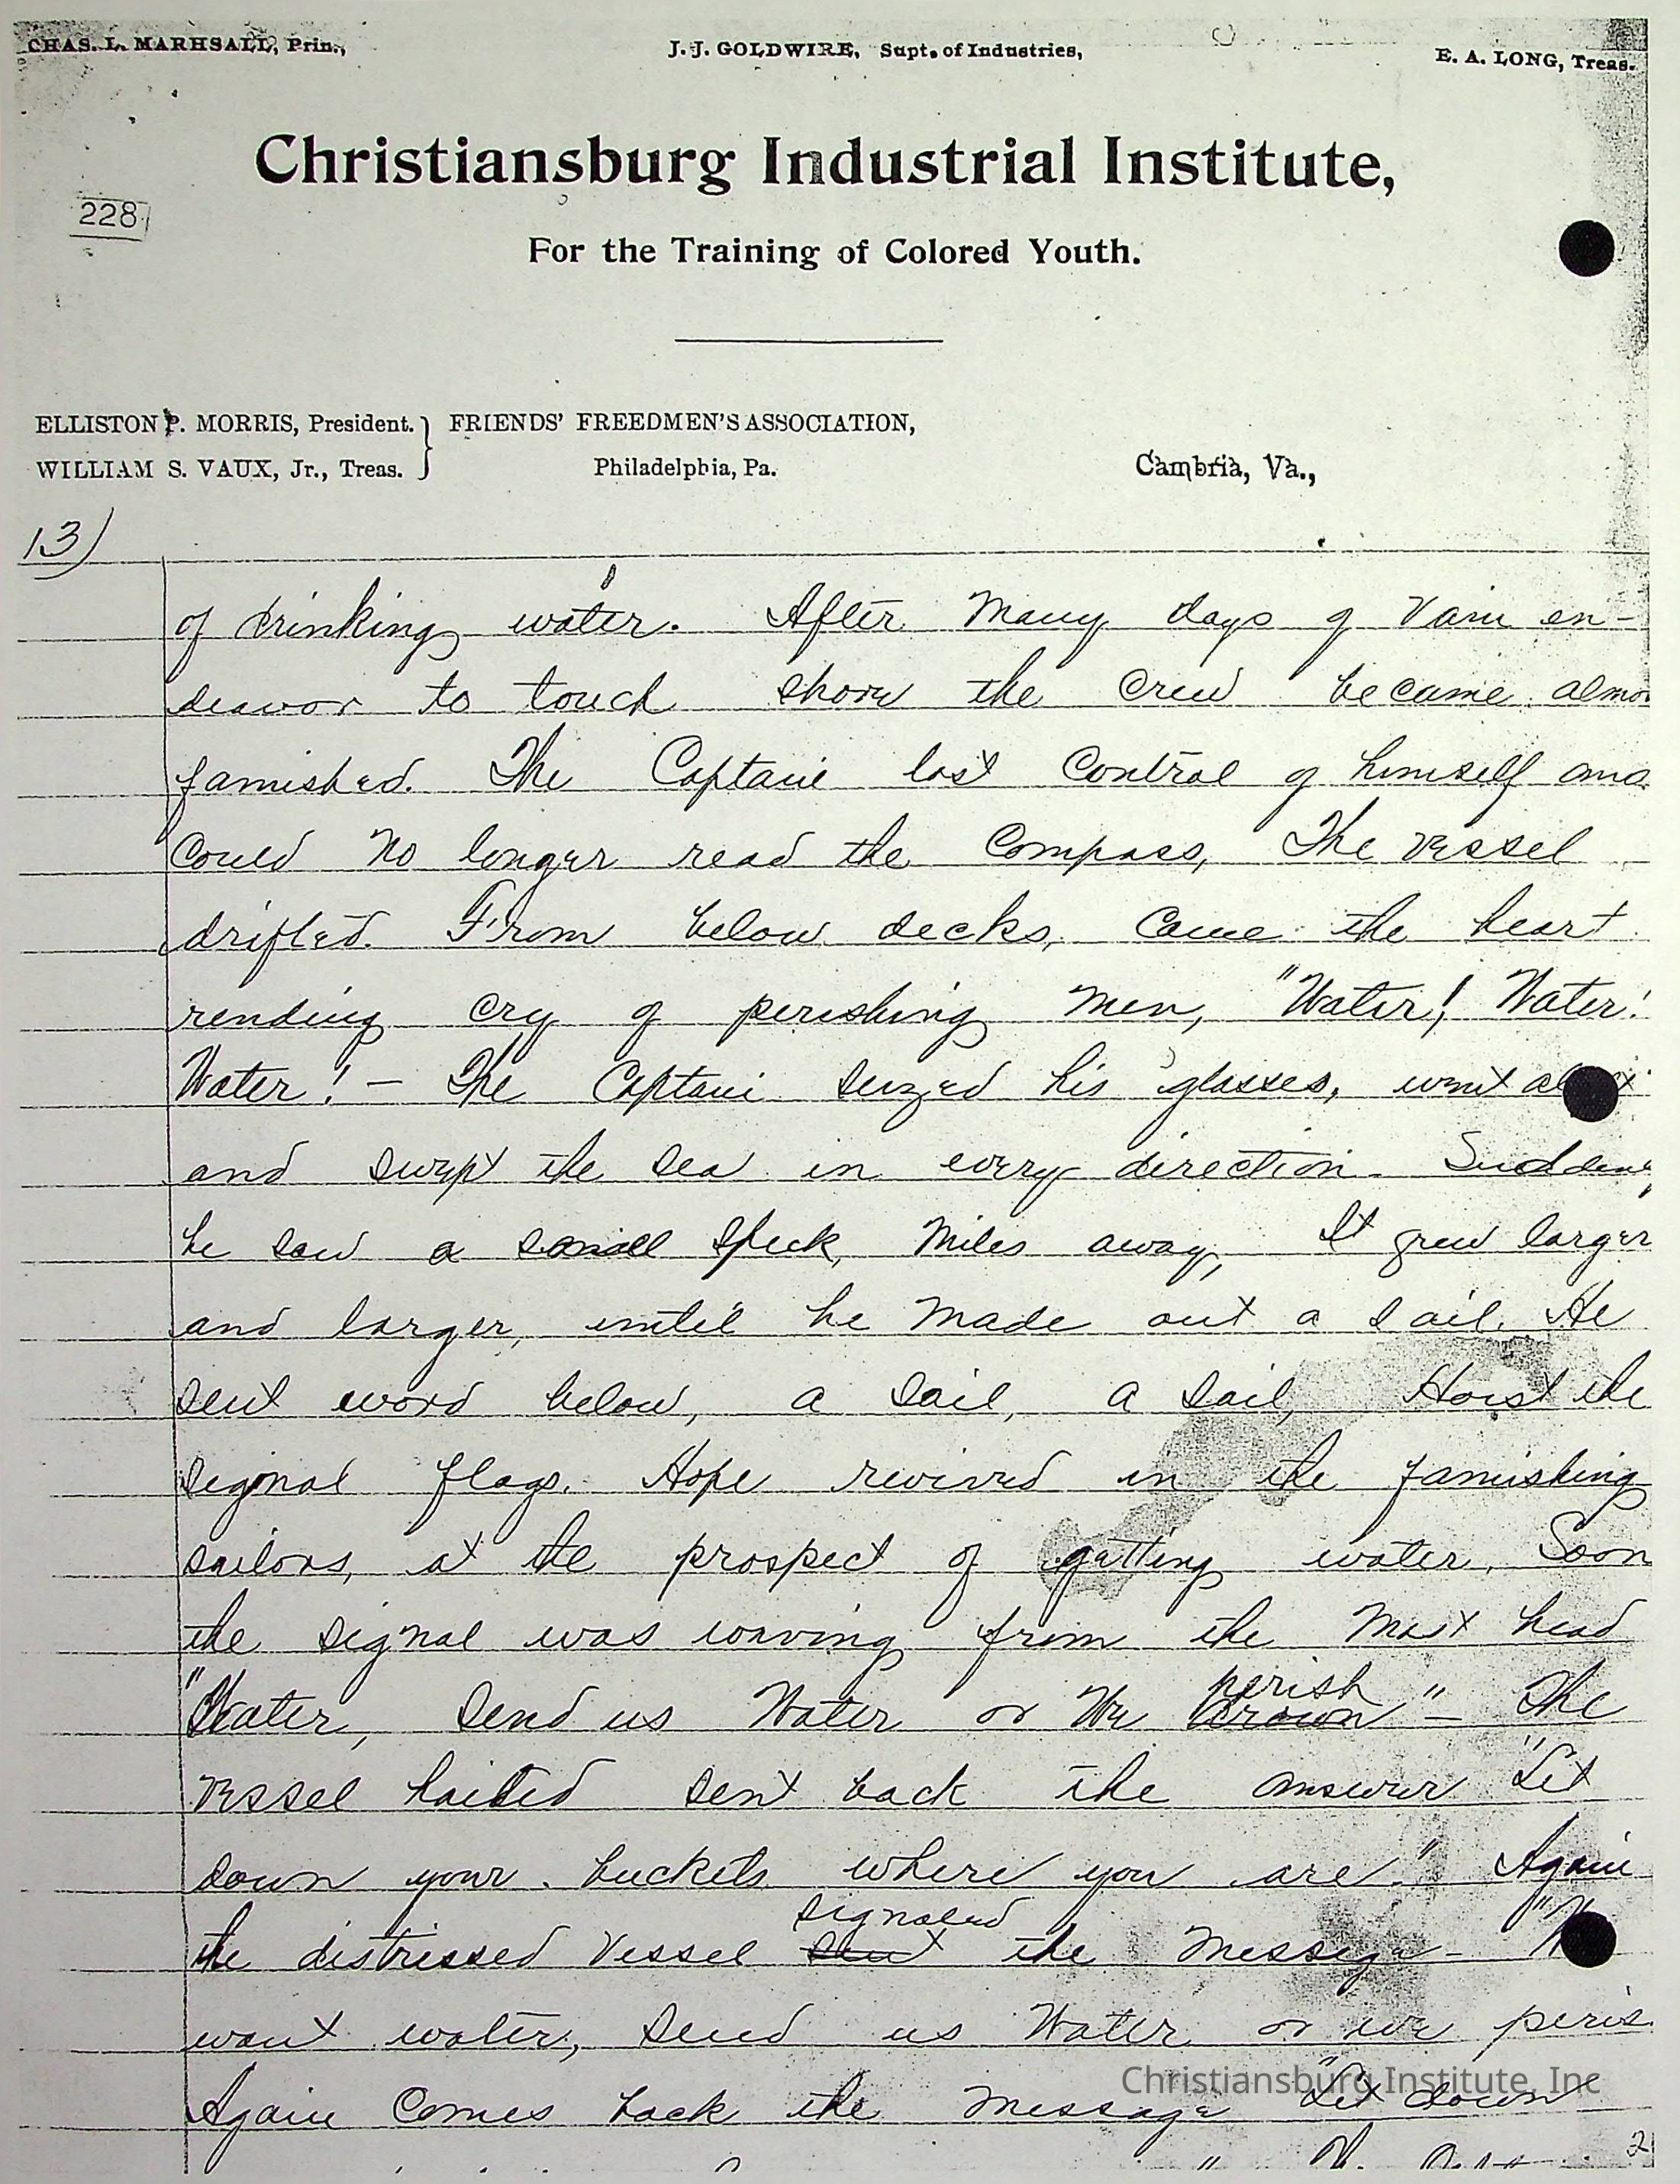 CHAS. L. MARHSALL, Prin.,
J. J. GOLDWIRE, Supt. of Industries,
E. A. LONG, Treas.
Christiansburg Industrial Institute,
228
For the Training of Colored Youth.
ELLISTON P. MORRIS, President. } FRIENDS' FREEDMEN'S ASSOCIATION,
WILLIAM S. VAUX, Jr., Treas. } Philadelphia, Pa.
Cambria, Va.,
13)
of drinking water. After many days of vain en-
deavor to touch shore the crew became almo
famished. The Captain lost control of himself and
could no longer read the compass, The vessel
drifted. From below decks, came the heart
rending cry of perishing men, "Water! Water!
Water! — The Captain seized his glasses, went
and swept the sea in every direction. Suddenly
he saw a small speck, miles away, It grew larger
and larger, until he made out a sail. He
sent word below, a sail, a sail, Hoist the
signal flags. Hope revived in the famishing
sailors, at the prospect of getting water. Soon
the signal was waving from the mast head
"Water, send us Water or We drown perish" — The
vessel hailed sent back the answer "Let
down your buckets where you are." Again
the distressed vessel sent signaled the messege - "W
want water, send us Water or we peris
Again comes back the message "Let down
Christiansburg Institute, Inc
2